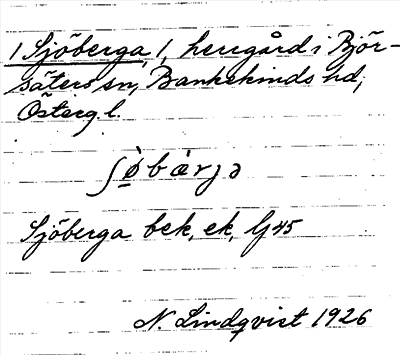 1 Sjöberga /, herrgård i Björ-
säters sn, Bankekinds hd,
Österg. l.
ʃø̀bærjə
Sjöberga bek, ek, lj 45
N. Lindqvist 1926